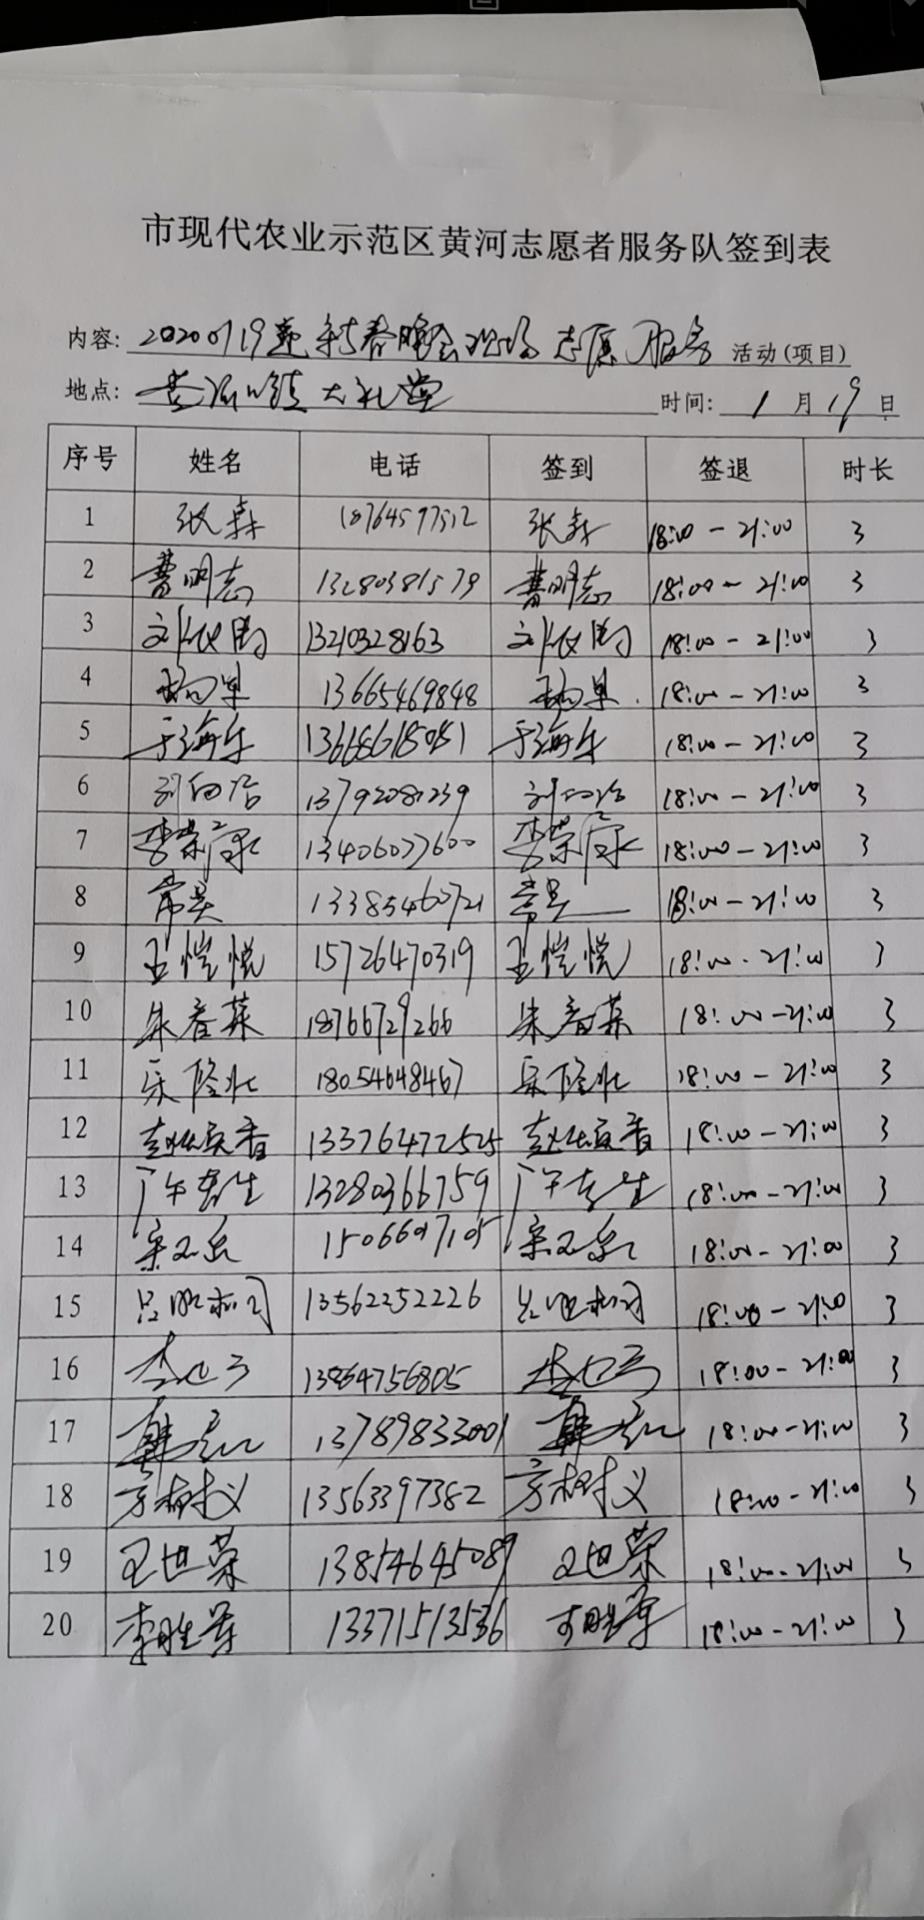 市现代农业示范区黄河志愿者服务队签到表
内容: 20200119迎新春晚会现场志愿服务 活动(项目)
地点: 黄河口镇大礼堂 时间: 1月19日
序号 姓名 电话 签到 签退 时长
1 张森 18764597512 张森 18:00-21:00 3
2 曹明志 13280381579 曹明志 18:00-21:00 3
3 13210328163 18:00-21:00 3
4 杨单 13665469848 杨单 18:00-21:00 3
5 于海生 18:00-21:00 3
6 18:00-21:00 3
7 李荣 13406077600 李荣 18:00-21:00 3
8 常昊 13385460721 常昊 18:00-21:00 3
9 王恺悦 15726470319 王恺悦 18:00-21:00 3
10 朱春菜 18766729266 朱春菜 18:00-21:00 3
11 18054648467 18:00-21:00 3
12 18:00-21:00 3
13 13280366759 18:00-21:00 3
14 18:00-21:00 3
15 13562252226 18:00-21:00 3
16 13864756805 18:00-21:00 3
17 13789833001 18:00-21:00 3
18 方树义 13563397382 方树义 18:00-21:00 3
19 王世荣 13854645089 王世荣 18:00-21:00 3
20 李胜军 13371513536 李胜军 18:00-21:00 3